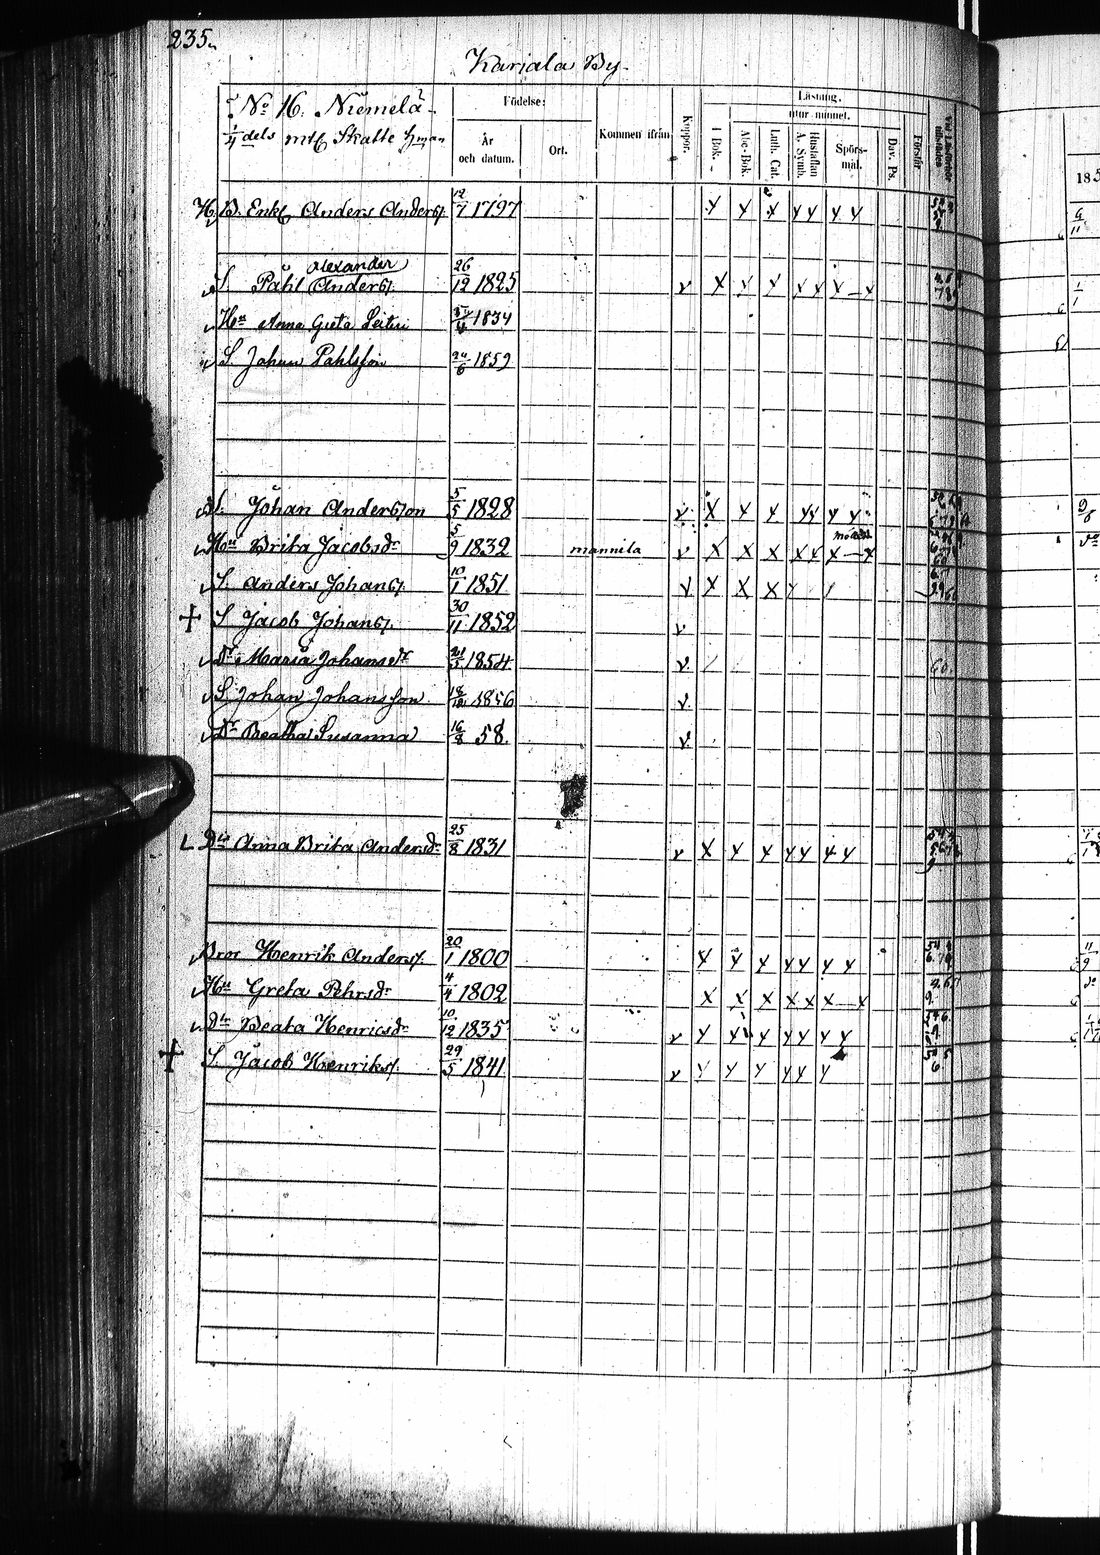 235.
Karjala By.
No 16. Niemelä
1/4 dels mtl Skatte hman
Födelse:
År och datum.
Ort.
Kommen ifrån
Koppor.
Läsning,
utur minnet.
I Bok.
Abc-Bok.
Luth. Cat.
Hustaflan A. Symb.
Spörsmål.
Dav. Ps.
Förstår
185
B. Enkl Anders Anders. 12/7 1797 x x x x x x x
Alexander
S. Påhl Anders. 26/12 1825 v x x x x x x – x
Hu Anna Greta 1834
S. Johan Pahlsson 24/6 1859
S. Johan Andersson 5/5 1828 v x x x x x x x
Hu Brita Jacobsdr 5/9 1832 mannila v x x x x x x – x
S. Anders Johans. 10/1 1851 v x x x
+ S Jacob Johans. 30/11 1852 v
Dr Maria Johansdr 1854 v 60.
S Johan Johansson 1856 v
Dr Beatha Susanna 16/8 58. v
L Dr Anna Brita Andersdr 25/8 1831 v x x x x x x x
Bror Henrik Anders. 20/1 1800 x x x x x x x
Hu Greta Pehrsdr 4/4 1802 x x x x x x – x
Dr Beata Henricsdr 10/12 1835 v x x x x x x x
+ S. Jacob Henriks. 29/5 1841 v x x x x x x